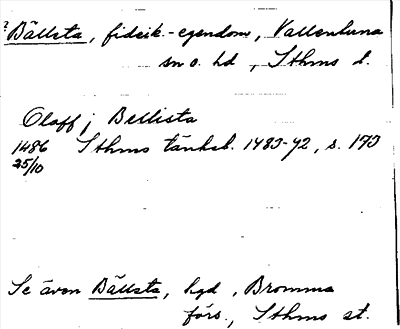 ? Bällsta, fideik.-egendom, Vallentuna
sn o. hd, Sthms l.
Olaff j Bellista
1486 Sthms tänkeb. 1483-92, s. 173
25/10
Se även Bällsta, hgd, Bromma
förs., Sthms st.